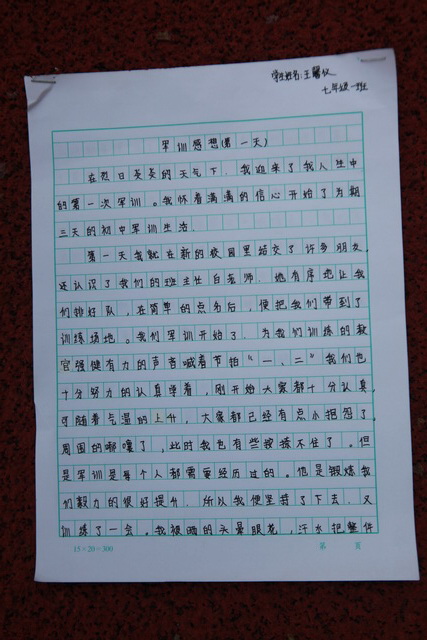 学生姓名:王馨仪
七年级一班
军训感想(第一天)
在烈日炎炎的天气下,我迎来了我人生中
的第一次军训。我怀着满满的信心开始了为期
三天的初中军训生活。
第一天我就在新的校园里结交了许多朋友,
还认识了我们的班主任白老师。她有序地让我
们排好队,在简单的点名后,便把我们带到了
训练场地。我们军训开始了,为我们训练的教
官强健有力的声音喊着节拍“一、二”我们也
十分努力的认真学着,刚开始大家都十分认真,
可随着气温的上升,大家都已经有点小抱怨了,
周围的嘟囔了,此时我也有些按捺不住了。但
是军训是每个人都需要经历过的。他是锻炼我
们毅力的很好提升,所以我便坚持了下去,又
训练了一会。我被晒的头晕眼花,汗水把整件
15×20=300
第 页